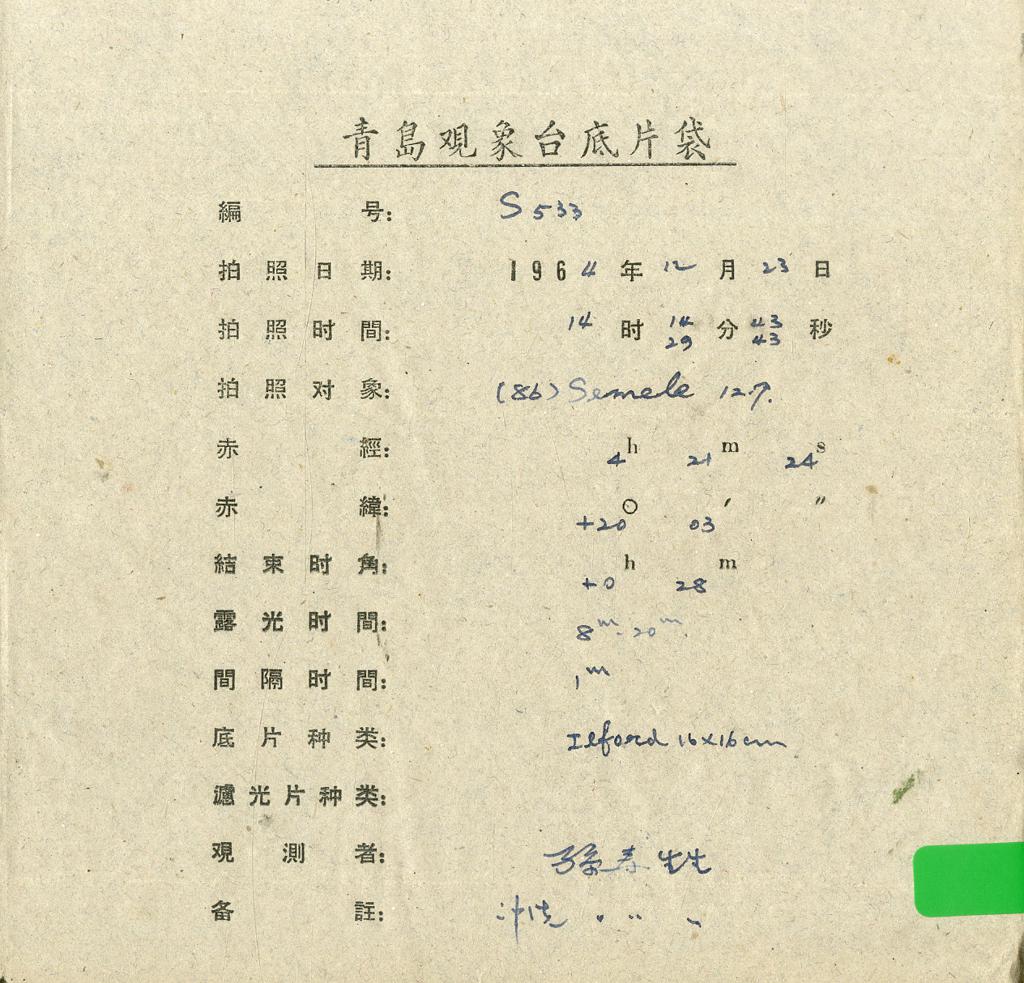 青島观象台底片袋
編号: S 533
拍照日期: 1964年12月23日
拍照时間: 14时 14 分 43 秒
29 43
拍照对象: (86) Semele 12.7.
赤經: 4h 21m 24s
赤緯: +20° 03′ ″
結束时角: +0h 28m
露光时間: 8m - 20m.
間隔时間: 1m
底片种类: Ilford 16x16cm
濾光片种类:
观測者: 孫寿
备註: 冲洗 〃